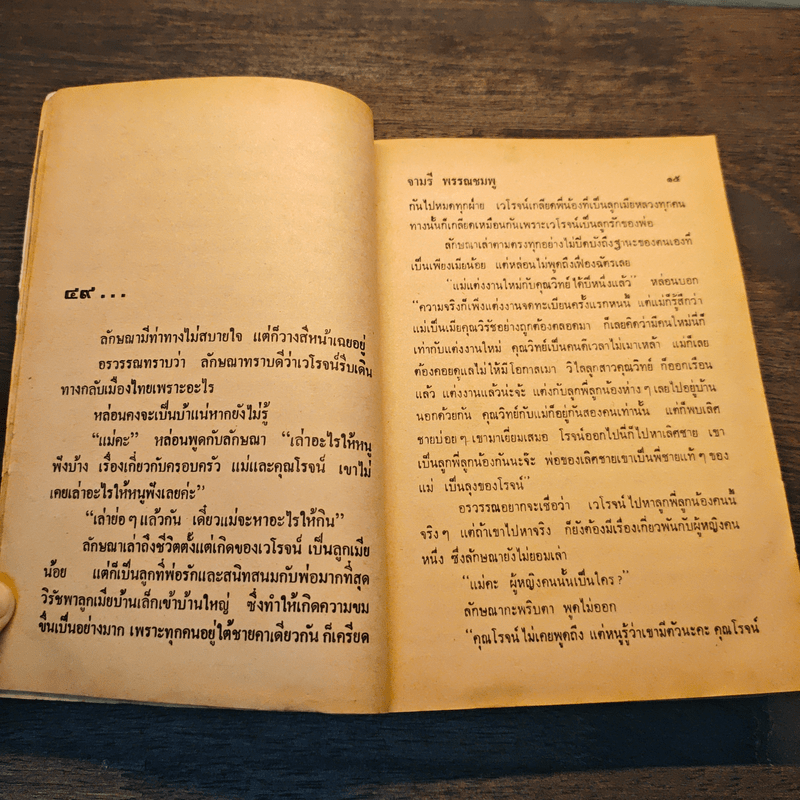 ๔๙...
ลักษณามีท่าทางไม่สบายใจ แต่ก็วางสีหน้าเฉยอยู่
อรวรรณทราบว่า ลักษณาทราบดีว่าเวโรจน์รีบเดิน
ทางกลับเมืองไทยเพราะอะไร
หล่อนคงจะเป็นบ้าแน่หากยังไม่รู้
“แม่คะ” หล่อนพูดกับลักษณา “เล่าอะไรให้หนู
ฟังบ้าง เรื่องเกี่ยวกับครอบครัว แม่และคุณโรจน์ เขาไม่
เคยเล่าอะไรให้หนูฟังเลยค่ะ”
“เล่าย่อๆ แล้วกัน เดี๋ยวแม่จะหาอะไรให้กิน”
ลักษณาเล่าถึงชีวิตตั้งแต่เกิดของเวโรจน์ เป็นลูกเมีย
น้อย แต่ก็เป็นลูกที่พ่อรักและสนิทสนมกับพ่อมากที่สุด
วิรัชพาลูกเมียบ้านเล็กเข้าบ้านใหญ่ ซึ่งทำให้เกิดความขม
ขื่นเป็นอย่างมาก เพราะทุกคนอยู่ใต้ชายคาเดียวกัน ก็เครียด
จามรี พรรณชมพู ๑๕
กันไปหมดทุกฝ่าย เวโรจน์เกลียดพี่น้องที่เป็นลูกเมียหลวงทุกคน
ทางนั้นก็เกลียดเหมือนกันเพราะเวโรจน์เป็นลูกรักของพ่อ
ลักษณาเล่าตามตรงทุกอย่างไม่ปิดบังถึงฐานะของตนเองที่
เป็นเพียงเมียน้อย แต่หล่อนไม่พูดถึงเฟื่องฉัตรเลย
“แม่แต่งงานใหม่กับคุณวิทย์ได้ปีหนึ่งแล้ว” หล่อนบอก
“ความจริงก็เพิ่งแต่งงานจดทะเบียนครั้งแรกหนนี้ แต่แม่ก็รู้สึกว่า
แม่เป็นเมียคุณวิรัชอย่างถูกต้องตลอดมา ก็เลยคิดว่ามีคนใหม่นี่ก็
เท่ากับแต่งงานใหม่ คุณวิทย์เป็นคนดีเวลาไม่เมาเหล้า แม่ก็เลย
ต้องคอยดูแลไม่ให้มีโอกาสเมา วิไลลูกสาวคุณวิทย์ ก็ออกเรือน
แล้ว แต่งงานแล้วน่ะจ้ะ แต่งกับลูกพี่ลูกน้องห่างๆ เลยไปอยู่บ้าน
นอกด้วยกัน คุณวิทย์กับแม่ก็อยู่กันสองคนเท่านั้น แต่ก็พบเลิศ
ชายบ่อยๆ เขามาเยี่ยมเสมอ โรจน์ออกไปนี่ก็ไปหาเลิศชาย เขา
เป็นลูกพี่ลูกน้องกันนะจ๊ะ พ่อของเลิศชายเขาเป็นพี่ชายแท้ๆ ของ
แม่ เป็นลุงของโรจน์”
อรวรรณอยากจะเชื่อว่า เวโรจน์ไปหาลูกพี่ลูกน้องคนนี้
จริงๆ แต่ถ้าเขาไปหาจริง ก็ยังต้องมีเรื่องเกี่ยวพันกับผู้หญิงคน
หนึ่ง ซึ่งลักษณายังไม่ยอมเล่า
“แม่คะ ผู้หญิงคนนั้นเป็นใคร?”
ลักษณากะพริบตา พูดไม่ออก
“คุณโรจน์ไม่เคยพูดถึง แต่หนูรู้ว่าเขามีตัวนะคะ คุณโรจน์